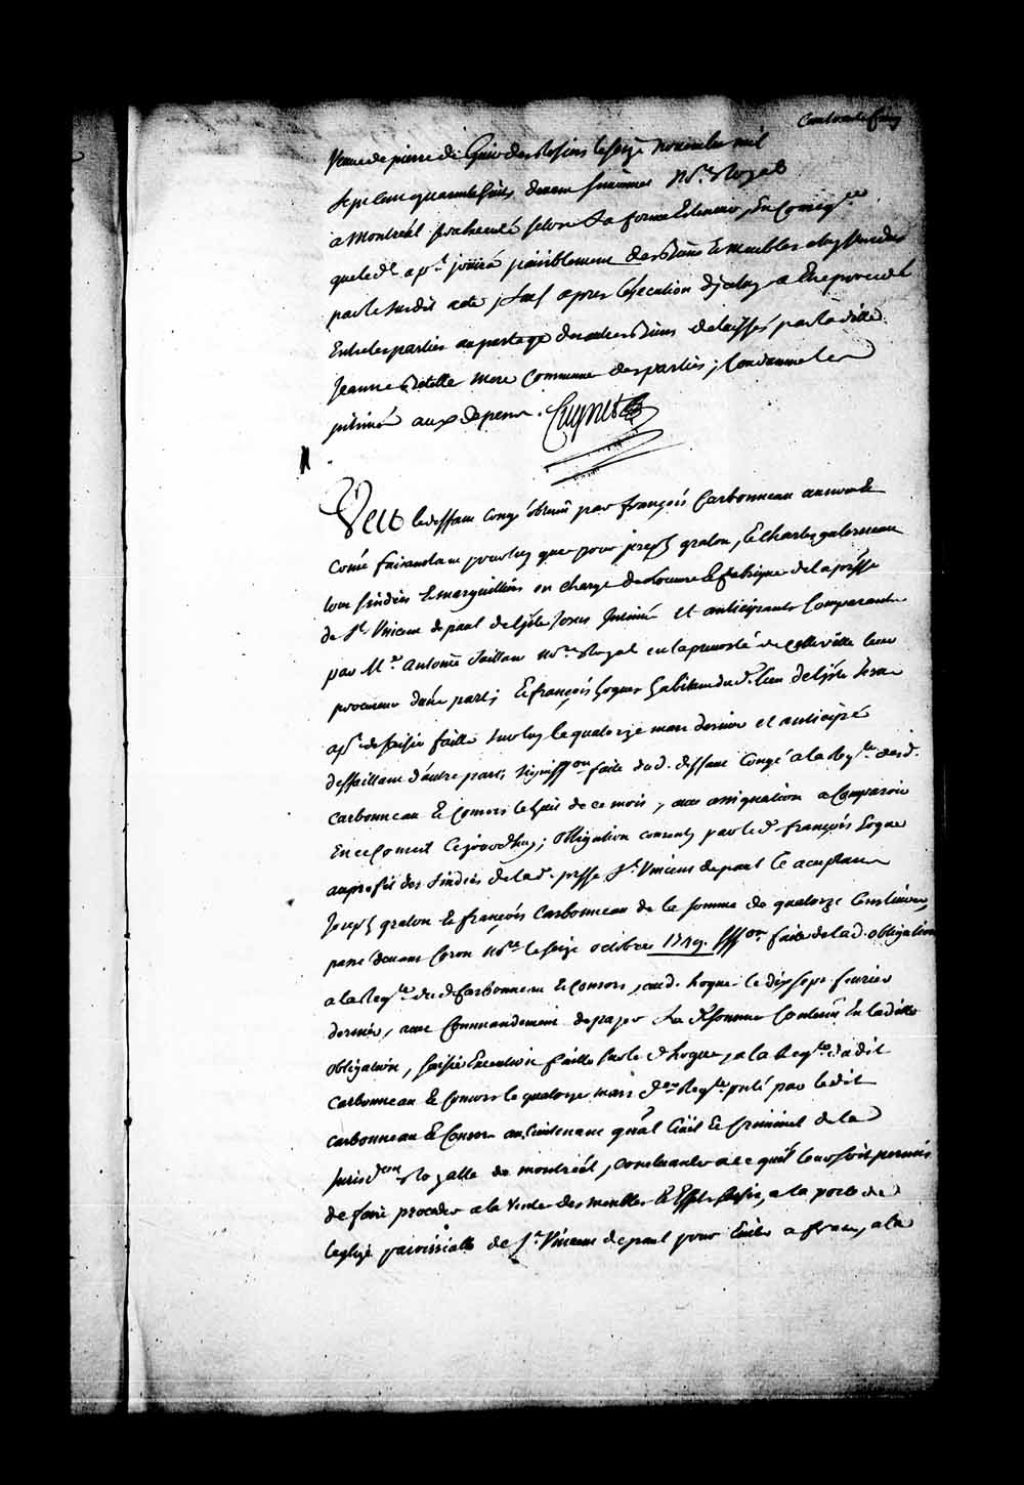 veuve de pierre de le seize novembre mil
sept cent quarante huit, devant No.re Royal
a Montreal selon Sa forme & teneur, En
que led. ap.t joüira paisiblement des Biens & meubles
par le susdit acte, sauf apres a Etre procedé
Entre les parties au partage des autres Biens delaissés par lad.
Jeanne mere Commune des parties; Condamne
intimé aux depens. Cugnet
Veu le deffaut Congé obtenu par françois Carbonneau au nom &
Comme faisant tant pour luy que pour joseph graton, & Charles
tous sindics & marguilliers en charge de L'oeuvre & fabrique de la p.sse
de S.t Vincent de paul de l'jsle Jesus Intimé et anticipant Comparant
par M.e Antoine No.re Royal en la prevosté de cette ville leur
procureur d'une part; & françois hogue habitant dud. lieu de l'jsle Jesus
ap.t de saisie faitte sur luy le quatorze mars dernier et anticipé
deffaillant d'autre part; signiff.on faite dud. deffaut Congé a la Req.te dud.
Carbonneau & Consors le huit de ce mois, avec assignation a Comparoir
En ce Conseil Cejourd'huy; obligation par led. françois hogue
au profit des sindics de lad. p.sse S.t Vincent de paul Ce acceptant
Joseph graton & françois Carbonneau de la somme de quatorze Cens livres,
passé devant Coron No.re le seize octobre 1749. sign.on faite de lad. obligation
a la Req.te dud. Carbonneau & Consors, aud. hogue le dix sept fevrier
dernier, avec Commandement de payer La d. somme Contenüe En lad.
obligation, saisie Execution faitte sur led. hogue, a la Req.te dudit
Carbonneau & Consors le quatorze mars d.er Req.te pnté par ledit
Carbonneau & Consors au Lieutenant gnâl Civil & Criminel de la
Jurisd.on Royalle de montreal, a ce quil leur soit permis
de faire proceder a la Vente des meubles & Effets saisis, a la porte de
leglise paroissialle de S.t Vincent de paul pour Eviter a frais, a la